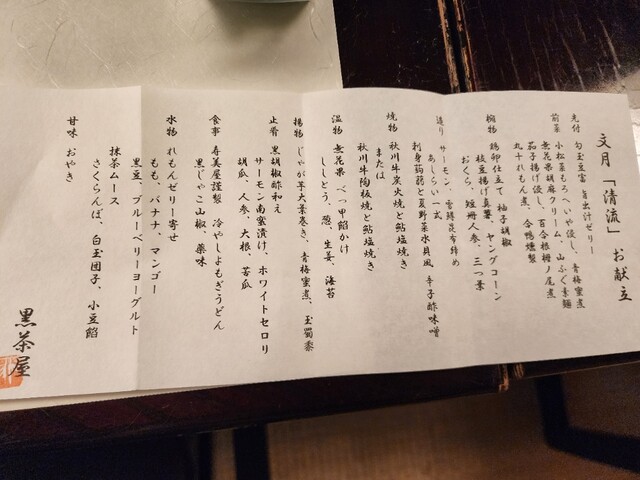 文月「清流」お献立
先付 勾玉豆富 旨出汁ゼリー
前菜 小松菜もろへいや浸し、青梅蜜煮
無花果胡麻クリーム、山ふぐ素麺
茄子揚げ浸し、百合根梅ノ尾煮
丸十れもん煮、合鴨燻製
椀物 鶏卵仕立て 柚子胡椒
枝豆揚げ真薯、ヤングコーン
おくら、短冊人参、三つ葉
造り サーモン、雪鱒昆布締め
あしらい一式
刺身蒟蒻と夏野菜水貝風 辛子酢味噌
焼物 秋川牛炭火焼と鮎塩焼き
または
秋川牛陶板焼と鮎塩焼き
温物 無花果 べっ甲餡かけ
ししとう、葱、生姜、海苔
揚物 じゃが芋大葉巻き、青梅蜜煮、玉蜀黍
止肴 黒胡椒酢和え
サーモン南蛮漬け、ホワイトセロリ
胡瓜、人参、大根、苦瓜
食事 寿美屋謹製 冷やしよもぎうどん
黒じゃこ山椒 薬味
水物 れもんゼリー寄せ
もも、バナナ、マンゴー
黒豆、ブルーベリーヨーグルト
抹茶ムース
さくらんぼ、白玉団子、小豆餡
甘味 おやき
黒茶屋